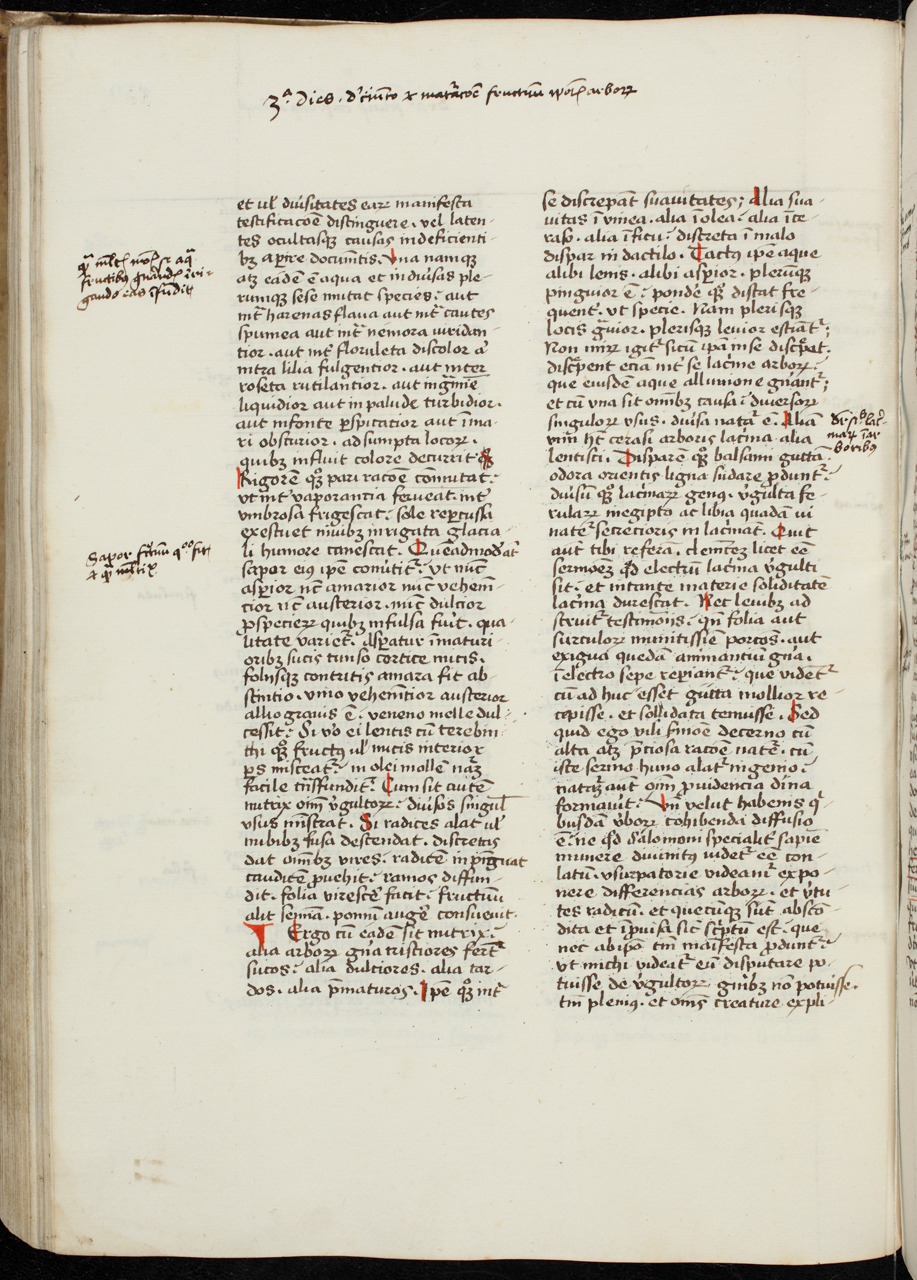 3ᵃ Dies
et ul diuſitates eaꝝ manifeſta
teſtificacōē diſtinguere · vel laten-
tes ocultasqꝫ cauſas indeficienti-
bꝫ apire documitis · Vna namqꝫ
atqꝫ eadē ē aqua et in diuſas ple-
rumqꝫ ſeſe mutat ſpecies · aut
int̄ harenas flaua aut int̄ cautes
ſpumea aut int̄ nemora viridan-
tior · aut int̄ floruleta diſcolor a̓
intra lilia fulgentior · aut inter
roſeta rutilantior · aut in g̃mīe
liquidior aut in palude turbidior ·
aut in fonte pſpicatior aut ī ma-
ri obſcurior · adſumpta locoꝝ ·
quibꝫ influit colorē decurrit
Rigorē qꝫ pari racōē cōmutat ·
vt int̄ vaporancia ferueat · int̄
vmbroſa frigeſcat · ſole repcuſſa
exeſtuet niuibꝫ inrigata glacia-
li humore caneſcat · Quēadmod' at'
ſapor eiꝰ ipē cōmutit͛ · vt nūc
aſpior nc̄ amarior nūc vehem̄-
cior nc̄ auſterior · nūc dulcior
p ſpecieꝝ quibꝫ infuſa fuit · qua-
litate variet͛ · Aſpatur īmaturi-
oribꝫ ſucis tunſo cortice nucis ·
foliisqꝫ contritis amara fit ab-
ſintio · vino vehem̄tior auſterior
allio grauis ē · veneno melle dul-
ceſſit · Si v̓o ei lentis cū terebin-
thi qꝫ fructꝰ ul nucis interior
ps miſceat͛ · in olei mollē nāꝫ
facile trāſfundit͛ · Cum ſit autē
nutrix om̄ v̓gultoꝝ · diuſos ſingul'
vſus mīſtrat · Si radices alat ul
nubibꝫ fuſa deſcendat · diſcretas
dat om̄bꝫ vires · radicē inpinguat
caudicē puehit · ramos diffun-
dit · folia vireſcē facit · fructuū
alit ſemīa · pomū augē conſueuit ·
Ergo cū eadē ſit nutrix ·
alia arboꝝ gn̄a triſtiores fert
ſucos · alia dulciores · alia tar-
dos · alia p̄maturos · Ipē qꝫ int̄
ſe diſcrepāt ſuauitates ; Alia ſua-
uitas ī vinea · alia ī olea · alia ī ce-
raſo · alia ī ficu · diſcreta ī malo
diſpar in dactilo · Tactꝰ ipē aque
alibi lenis · alibi aſpior · plerūqꝫ
pinguior ē · pondē qꝫ diſtat fre-
quent̄ · vt ſpecie · Nam pleriſqꝫ
locis g̃uior · pleriſqꝫ leuior eſtiat͛ ;
Non miꝝ igit͛ ſicū ipā in ſe diſcrepat ·
diſcrepent eciā int̄ ſe lacrime arboꝝ ·
que eiuſdē aque alluuione gn̄ant͛ ;
et cū vna ſit om̄bꝫ cauſa · diuerſoꝝ
ſinguloꝝ vſus · diuſa natā ē · Aliā
vim ht̄ ceraſi arboris lacrima alia
lentiſci · Diſparē qꝫ balſami guttā ·
odora orientis ligna ſudare pdunt͛ ·
diuſum qꝫ lacrimaꝝ genꝰ · v̓gulta fe-
rulaꝝ in egipto ac libia quadā ui
nate ſecrecioris in lacrimāt · Quit
aut tibi referā · clemcꝫ licet eē
ſermoeꝫ qd̄ electrū lacrima v̓gulti
ſit · et in tante materie ſoliditatē
lacrima dureſcat · Nec leuibꝫ ad
ſtruit͛ teſtimoniis · qn̄ folia aut
ſurculoꝝ minutiſſīe porcōs · aut
exigua quedā animantiū gn̄a ·
ī electro ſepe repiant͛ · que videt͛
cū ad huc eſſet gutta mollior re-
cepiſſe · et ſollidata tenuiſſe · Sed
quid ego vili ſ̓moē decerno cū
alta atqꝫ p̄cioſa racōē nate · cū
iſte ſermo hūano alat͛ ingenio ·
naturaꝫ aut om̄ prouidencia diuīa
formauit · Vn̄ velut habenis q̓-
buſdā v̓boꝝ cohibenda diffuſio
ē · ne qd̄ Salomoni ſpecialit͛ ſapīe
munere diuinitꝰ videt͛ eē con-
latū · vſurpatorie videam͛ expo-
nere differencias arboꝝ · et v̓tu-
tes radicū · et quecūqꝫ ſūt abſco-
dita et īpuiſa ſic ſcriptū eſt · que
nec ab ipo tm̄ maīfeſta pdunt͛ ·
vt michi videat͛ eū diſputare po-
tuiſſe de v̓gultoꝝ gn̄ibꝫ nō potuiſſe ·
tm̄ pleniꝰ · et om̄s creature expli-